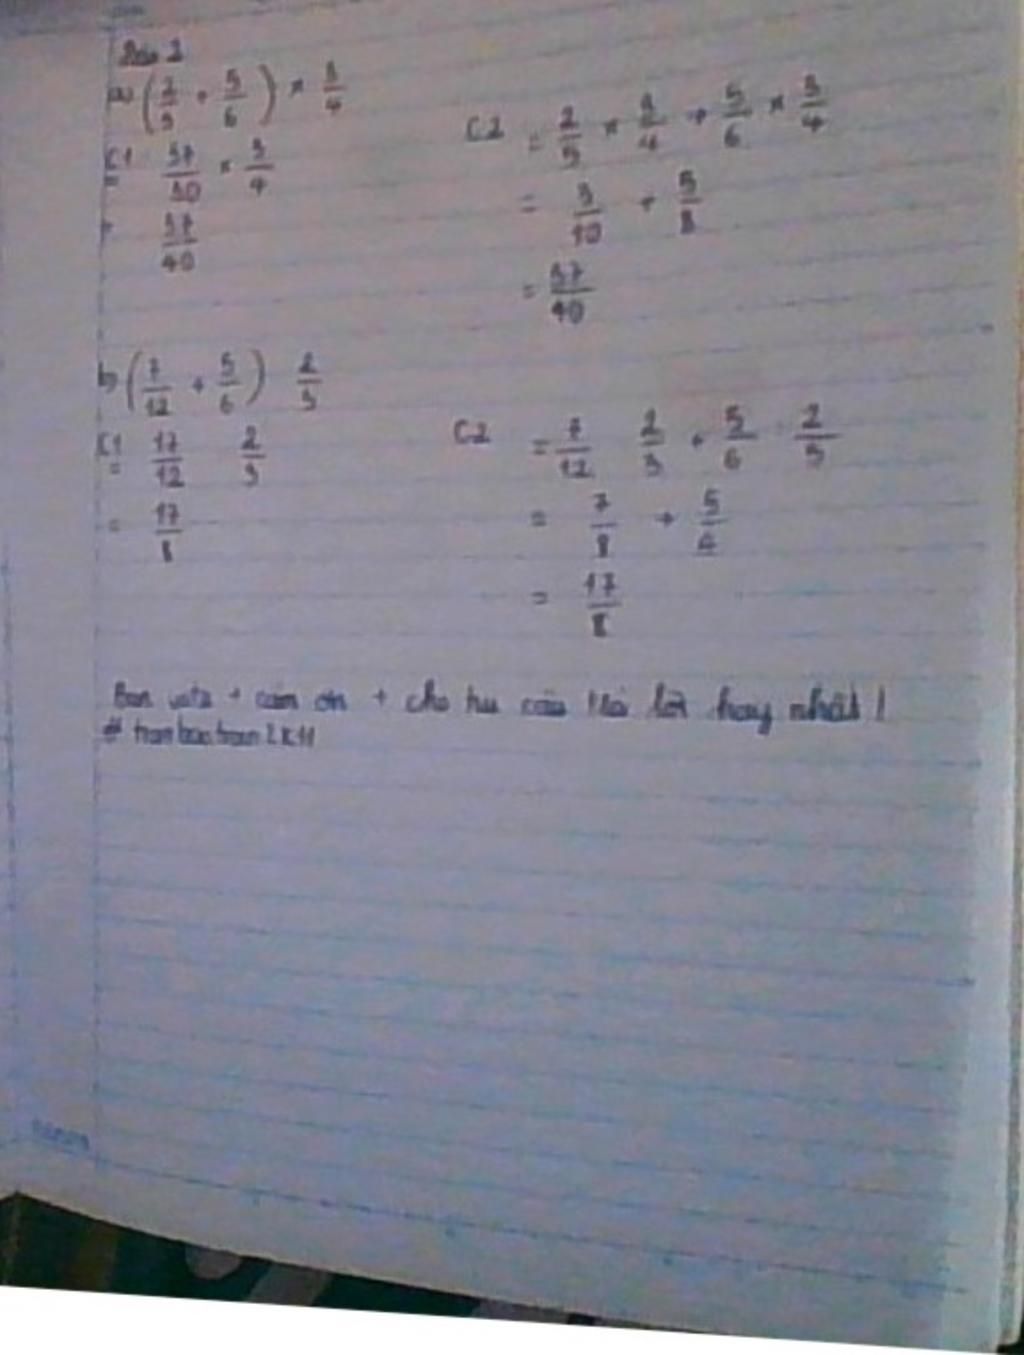 Bài 2
a) (2/5 + 5/6) × 3/4
C1 = 37/30 × 3/4
= 37/40
C2 = 2/5 × 3/4 + 5/6 × 3/4
= 3/10 + 5/8
= 37/40
b) (7/12 + 5/6) 2/3
C1 = 17/12 2/3
= 17/8
C2 = 7/12 2/3 + 5/6 2/3
= 7/8 + 5/4
= 17/8
+ cảm ơn + cho câu trả lời hay nhất!